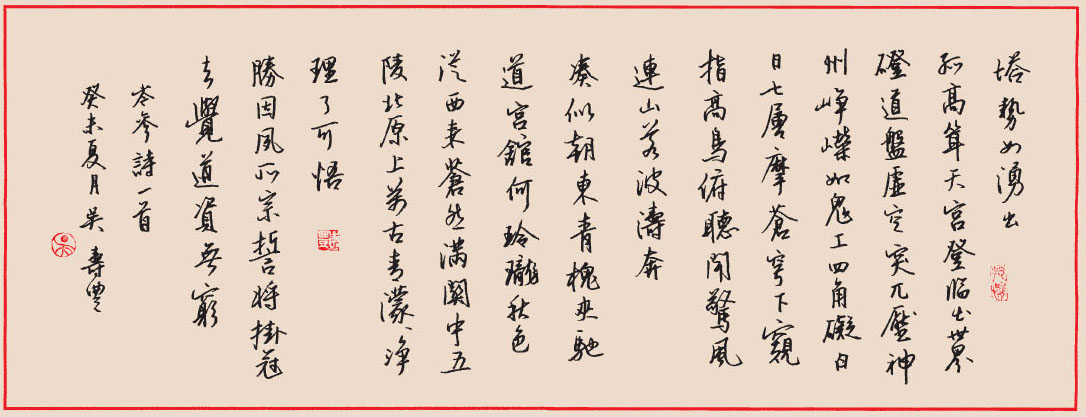 塔勢如湧出
孤高聳天宮登臨出世界
磴道盤虛空突兀壓神
州崢嶸如鬼工四角礙白
日七層摩蒼穹下窺
指高鳥俯聽聞驚風
連山若波濤奔
凑似朝東青槐夾馳
道宮館何玲瓏秋色
從西來蒼然滿關中五
陵北原上萬古青濛濛淨
理了可悟
勝因夙所宗誓將掛冠
去覺道資無窮
岑參詩一首
癸未夏月吳壽豊